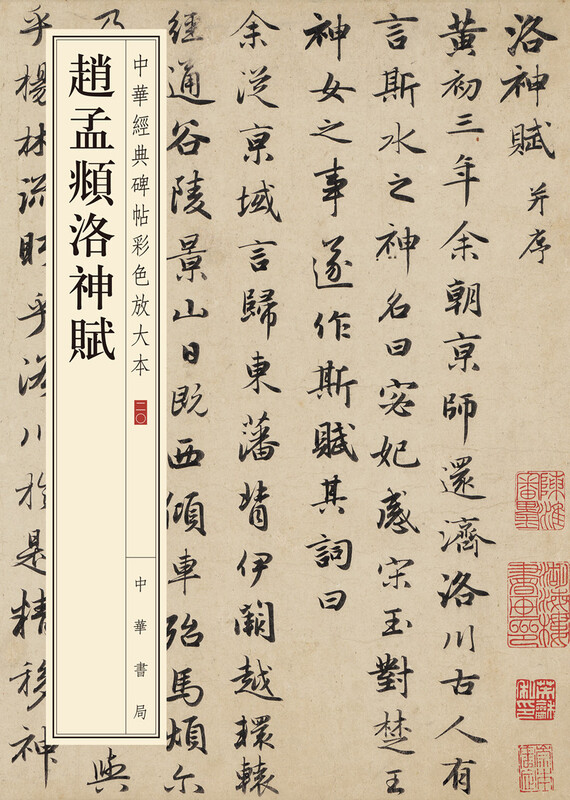 洛神賦 并序
黄初三年余朝京師還濟洛川古人有
言斯水之神名曰宓妃感宋玉對楚王
神女之事遂作斯賦其詞曰
余從京域言歸東藩背伊闕越轘轅
經通谷陵景山日既西傾車殆馬煩尓
乃
與
乎楊林流眄乎洛川於是精移神
中華經典碑帖彩色放大本
二〇
中華書局
趙孟頫洛神賦